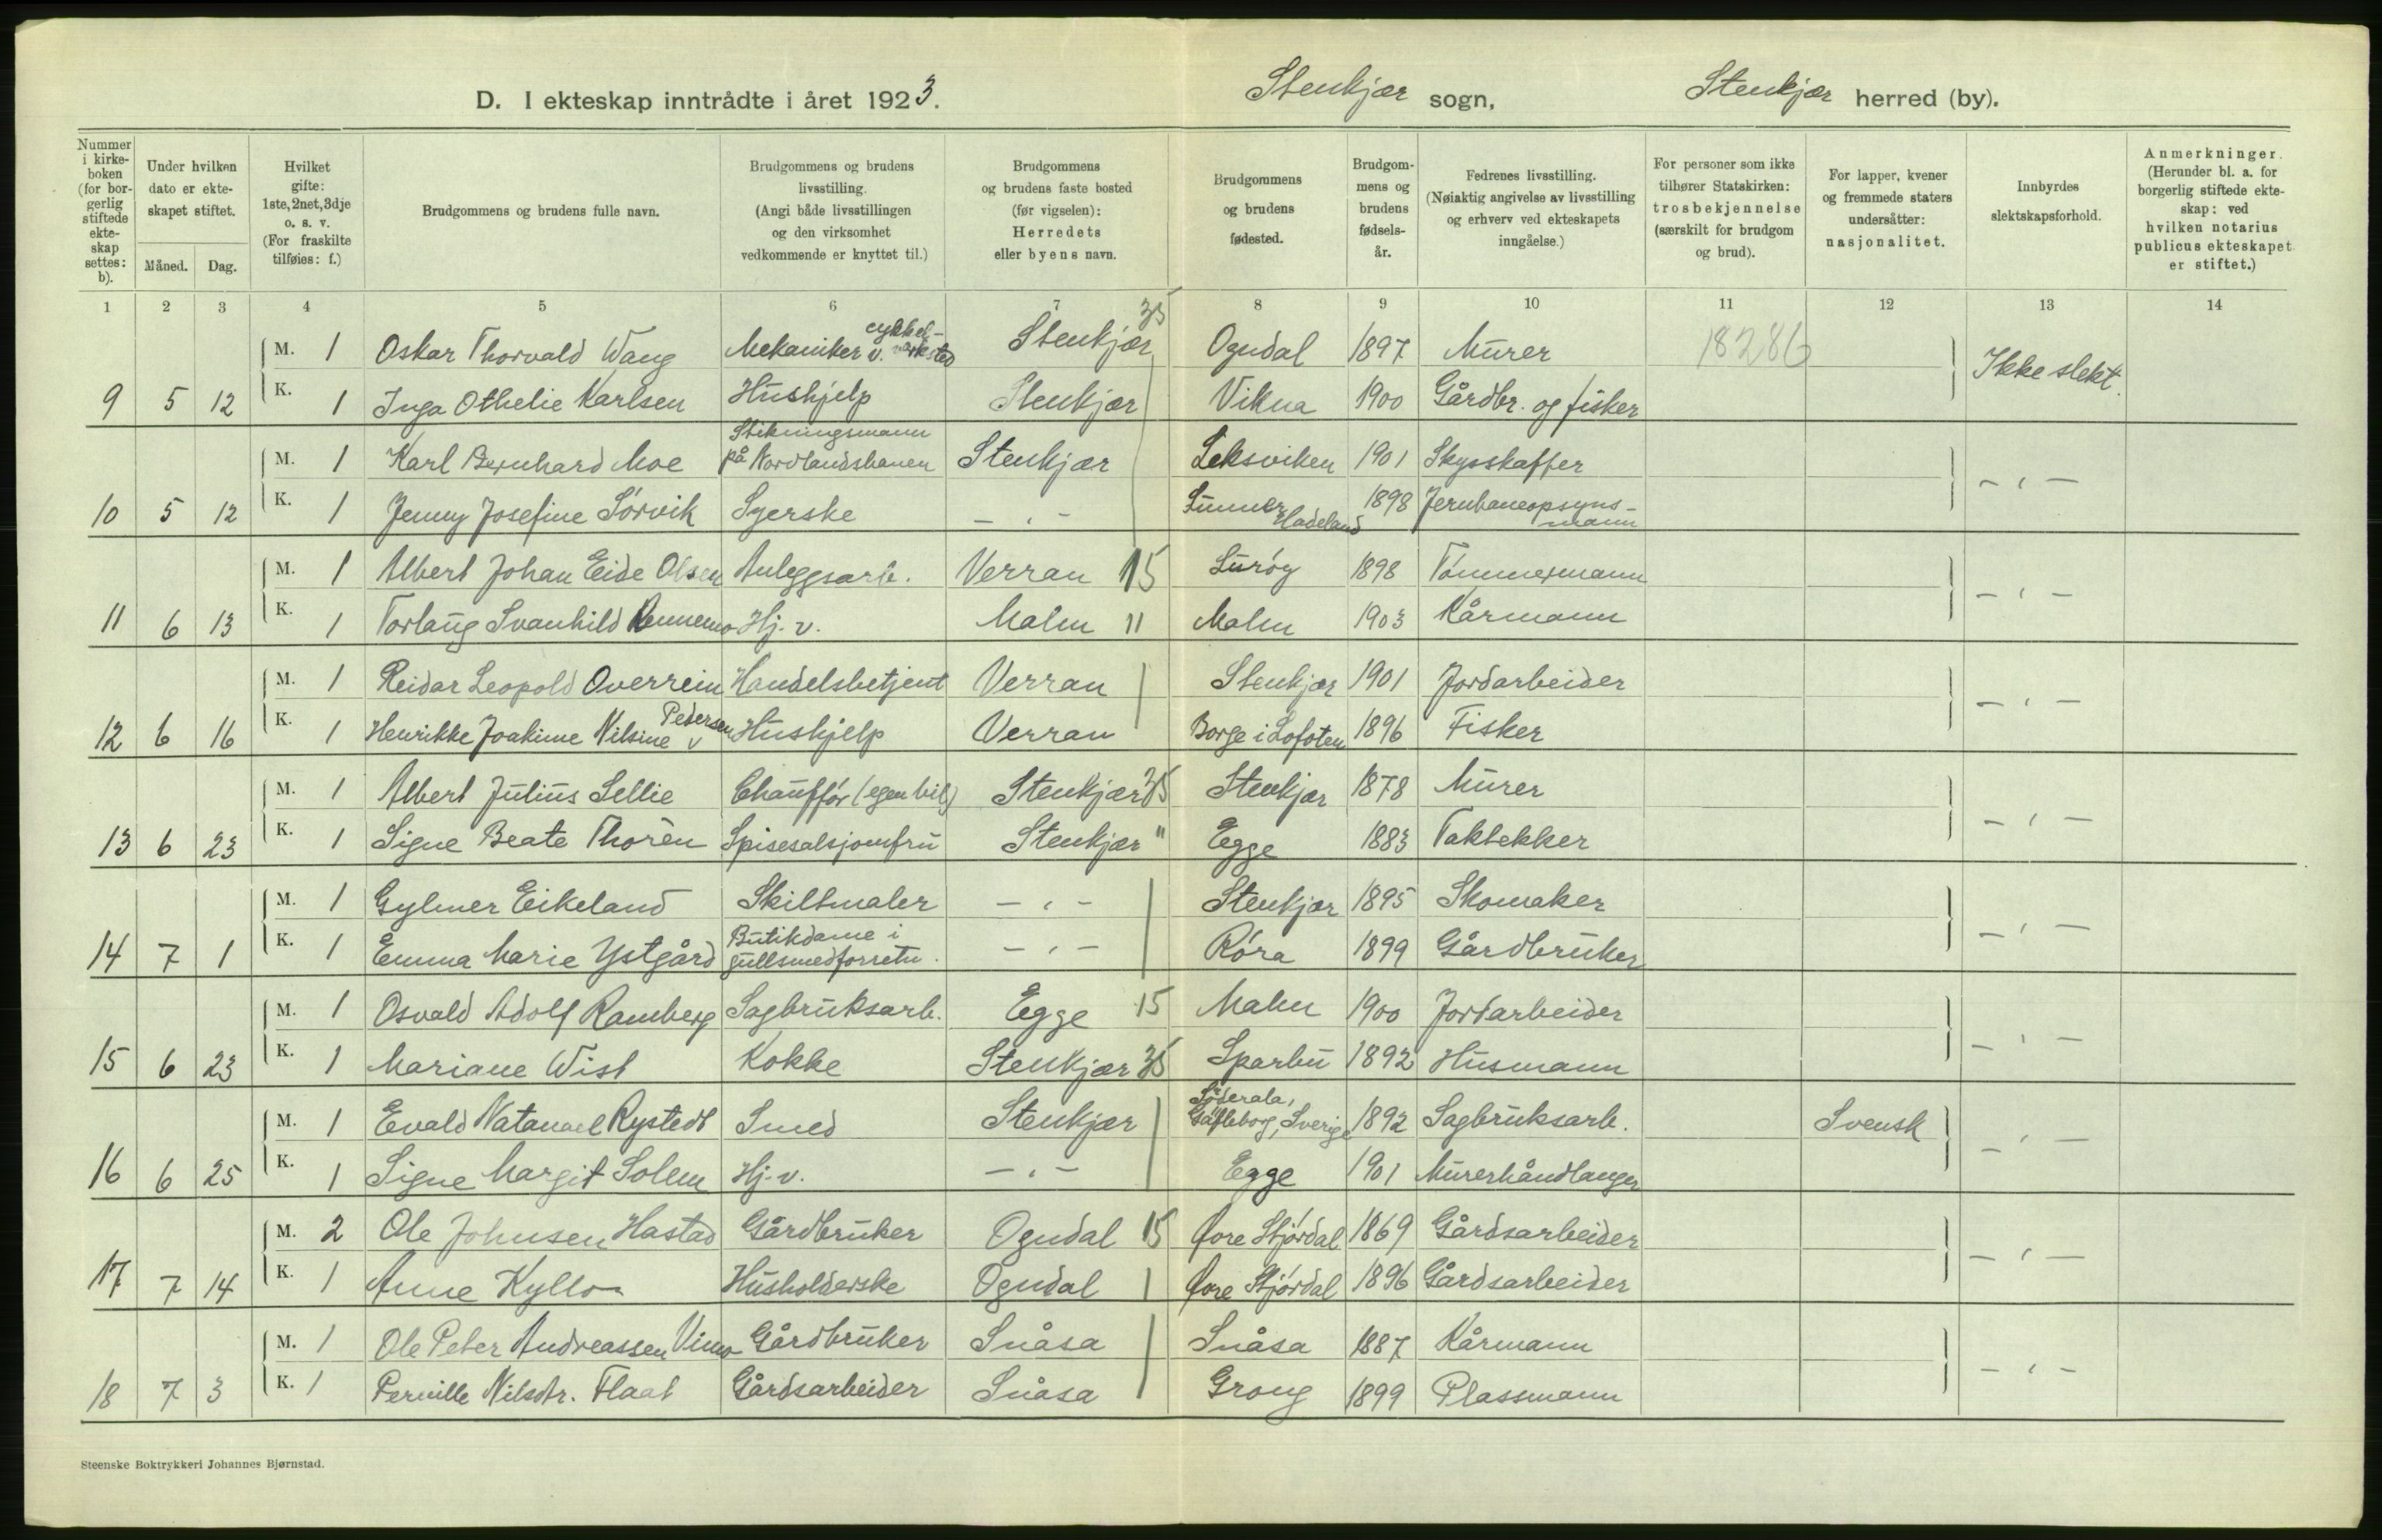 D. I ekteskap inntrådte i året 1923. Stenkjær sogn, Stenkjær herred (by).
Nummer i kirke- boken (for bor- gerlig stiftede ekte- skap settes: b).
Under hvilken dato er ekte- skapet stiftet.
Måned. Dag.
Hvilket gifte: 1ste, 2net, 3dje o. s. v. (For fraskilte tilføies: f.)
Brudgommens og brudens fulle navn.
Brudgommens og brudens livsstilling. (Angi både livsstillingen og den virksomhet vedkommende er knyttet til.)
Brudgommens og brudens faste bosted (før vigselen): Herredets eller byens navn.
Brudgommens og brudens fødested.
Brudgom- mens og brudens fødsels- år.
Fedrenes livsstilling. (Nøiaktig angivelse av livsstilling og erhverv ved ekteskapets inngåelse.)
For personer som ikke tilhører Statskirken: trosbekjennelse (særskilt for brudgom og brud).
For lapper, kvener og fremmede staters undersåtter: nasjonalitet.
Innbyrdes slektskapsforhold.
Anmerkninger. (Herunder bl. a. for borgerlig stiftede ekte- skap: ved hvilken notarius publicus ekteskapet er stiftet.)
1 2 3 4 5 6 7 8 9 10 11 12 13 14
M. 1 Oskar Thorvald Wang Mekaniker v. cykkel- verksted Stenkjær 35 Ogndal 1897 Murer 18286 Ikke slekt.
9 5 12 K. 1 Inga Othelie Karlsen Hushjelp Stenkjær Vikna 1900 Gårdbr. og fisker
M. 1 Karl Bernhard Moe Stikningsmann på Nordlandsbanen Stenkjær Leksviken 1901 Skysskaffer - " -
10 5 12 K. 1 Jenny Josefine Sørvik Syerske - " - Lunner Hadeland 1898 Jernbaneopsyns- mann
M. 1 Albert Johan Eide Olsen Anleggsarb. Verran 15 Lurøy 1898 Tømmermann - " -
11 6 13 K. 1 Torlaug Svanhild Rennemo Hj. v. Malm 11 Malm 1903 Kårmann
M. 1 Reidar Leopold Overrein Handelsbetjent Verran Stenkjær 1901 Jordarbeider - " -
12 6 16 K. 1 Henrikke Joakime Nilsine Pedersen Hushjelp Verran Borge i Lofoten 1896 Fisker
M. 1 Albert Julius Sellie Chauffør (egen bil) Stenkjær 35 Stenkjær 1878 Murer - " -
13 6 23 K. 1 Signe Beate Thorèn Spisesalsjomfru Stenkjær " Egge 1883 Taktekker
M. 1 Gylmer Eikeland Skiltmaler - " - Stenkjær 1895 Skomaker - " -
14 7 1 K. 1 Emma Marie Ystgård Butikdame i gullsmedforretn. - " - Røra 1899 Gårdbruker
M. 1 Osvald Adolf Ramberg Sagbruksarb. Egge 15 Malm 1900 Jordarbeider - " -
15 6 23 K. 1 Mariane Wist Kokke Stenkjær 35 Sparbu 1892 Husmann
M. 1 Evald Natanael Rystedt Smed Stenkjær Söderala, Gäfleborg, Sverige 1892 Sagbruksarb. Svensk - " -
16 6 25 K. 1 Signe Margit Solem Hj. v. - " - Egge 1901 Murerhåndlanger
M. 2 Ole Johnsen Hastad Gårdbruker Ogndal 15 Øvre Stjørdal 1869 Gårdsarbeider - " -
17 7 14 K. 1 Anne Kyllo Husholderske Ogndal Øvre Stjørdal 1896 Gårdsarbeider
M. 1 Ole Peter Andreassen Vimo Gårdbruker Snåsa Snåsa 1887 Kårmann - " -
18 7 3 K. 1 Pernille Nilsdtr. Flaat Gårdsarbeider Snåsa Grong 1899 Plassmann
Steenske Boktrykkeri Johannes Bjørnstad.